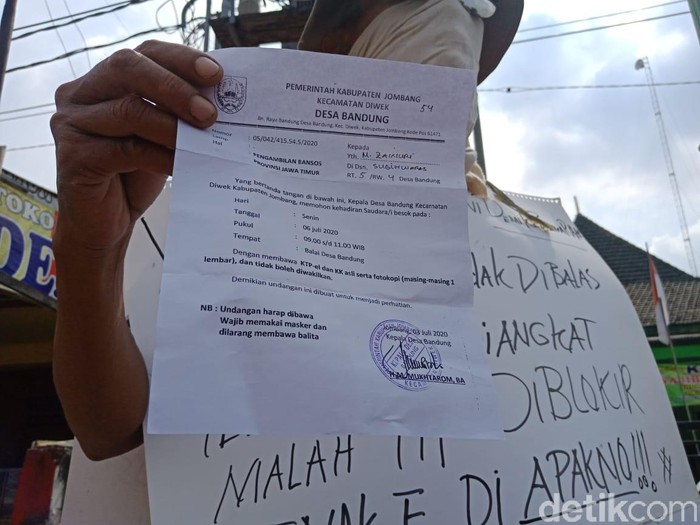 PEMERINTAH KABUPATEN JOMBANG
KECAMATAN DIWEK
DESA BANDUNG
54
Jln. Raya Bandung Desa Bandung, Kec. Diwek, Kabupaten Jombang Kode Pos 61471
Nomor : 05/042/415.54.5/2020
Hal : PENGAMBILAN BANSOS
PROVINSI JAWA TIMUR
Kepada
Yth. M. ZAINURI
Di Dsn.
RT. 5 /RW. 4 Desa Bandung
Yang bertanda tangan di bawah ini, Kepala Desa Bandung Kecamatan
Diwek Kabupaten Jombang, memohon kehadiran Saudara/i besok pada :
Hari : Senin
Tanggal : 06 juli 2020
Pukul : 09.00 s/d 11.00 WIB
Tempat : Balai Desa Bandung
Dengan membawa KTP-el dan KK asli serta fotokopi (masing-masing 1
lembar), dan tidak boleh diwakilkan.
Demikian undangan ini dibuat untuk menjadi perhatian.
NB : Undangan harap dibawa
Wajib memakai masker dan
dilarang membawa balita
Bandung, 03 Juli 2020
Kepala Desa Bandung
H.M. MUKHTAROM, BA
TOKO
DAK DIBALAS
DIANGKAT
DIBLOKIR
MALAH !!!
DI APAKNO!!!
detikcom